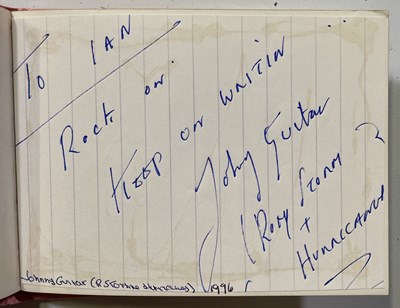 To IAN
Rock on..
Keep on writin ...
Johny Guitar
(Rory Storm
+
Hurricanes)
Johnny Guitar (R. Storm & the Hurricanes) 1996.